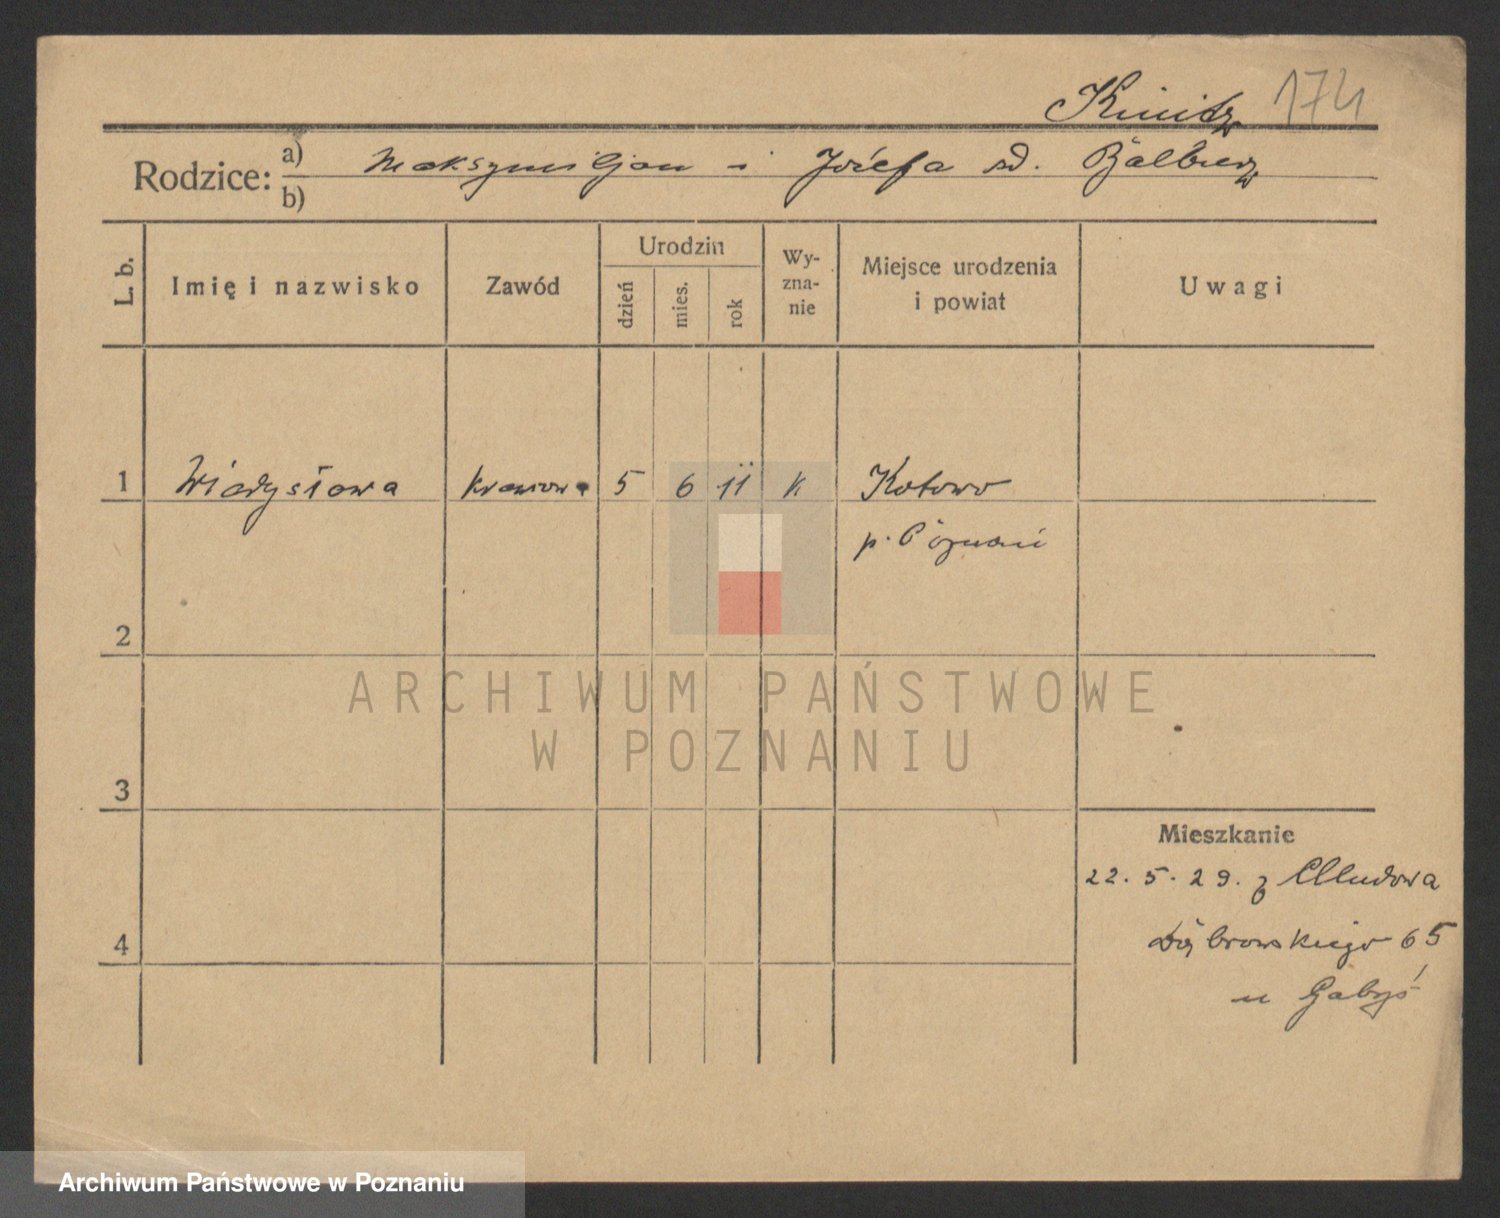 174
Rodzice: a) Maksymiljan i Józefa zd.
b)
L. b.
Imię i nazwisko
Zawód
Urodzin
dzień
mies.
rok
Wy-
zna-
nie
Miejsce urodzenia
i powiat
Uwagi
1 Władysława krawcowa 5 6 11 k Kotowo
p. Poznań
2
ARCHIWUM PAŃSTWOWE
W POZNANIU
3
Mieszkanie
22. 5. 29. z Chludowa
4 Dąbrowskiego 65
u Gabryś
Archiwum Państwowe w Poznaniu